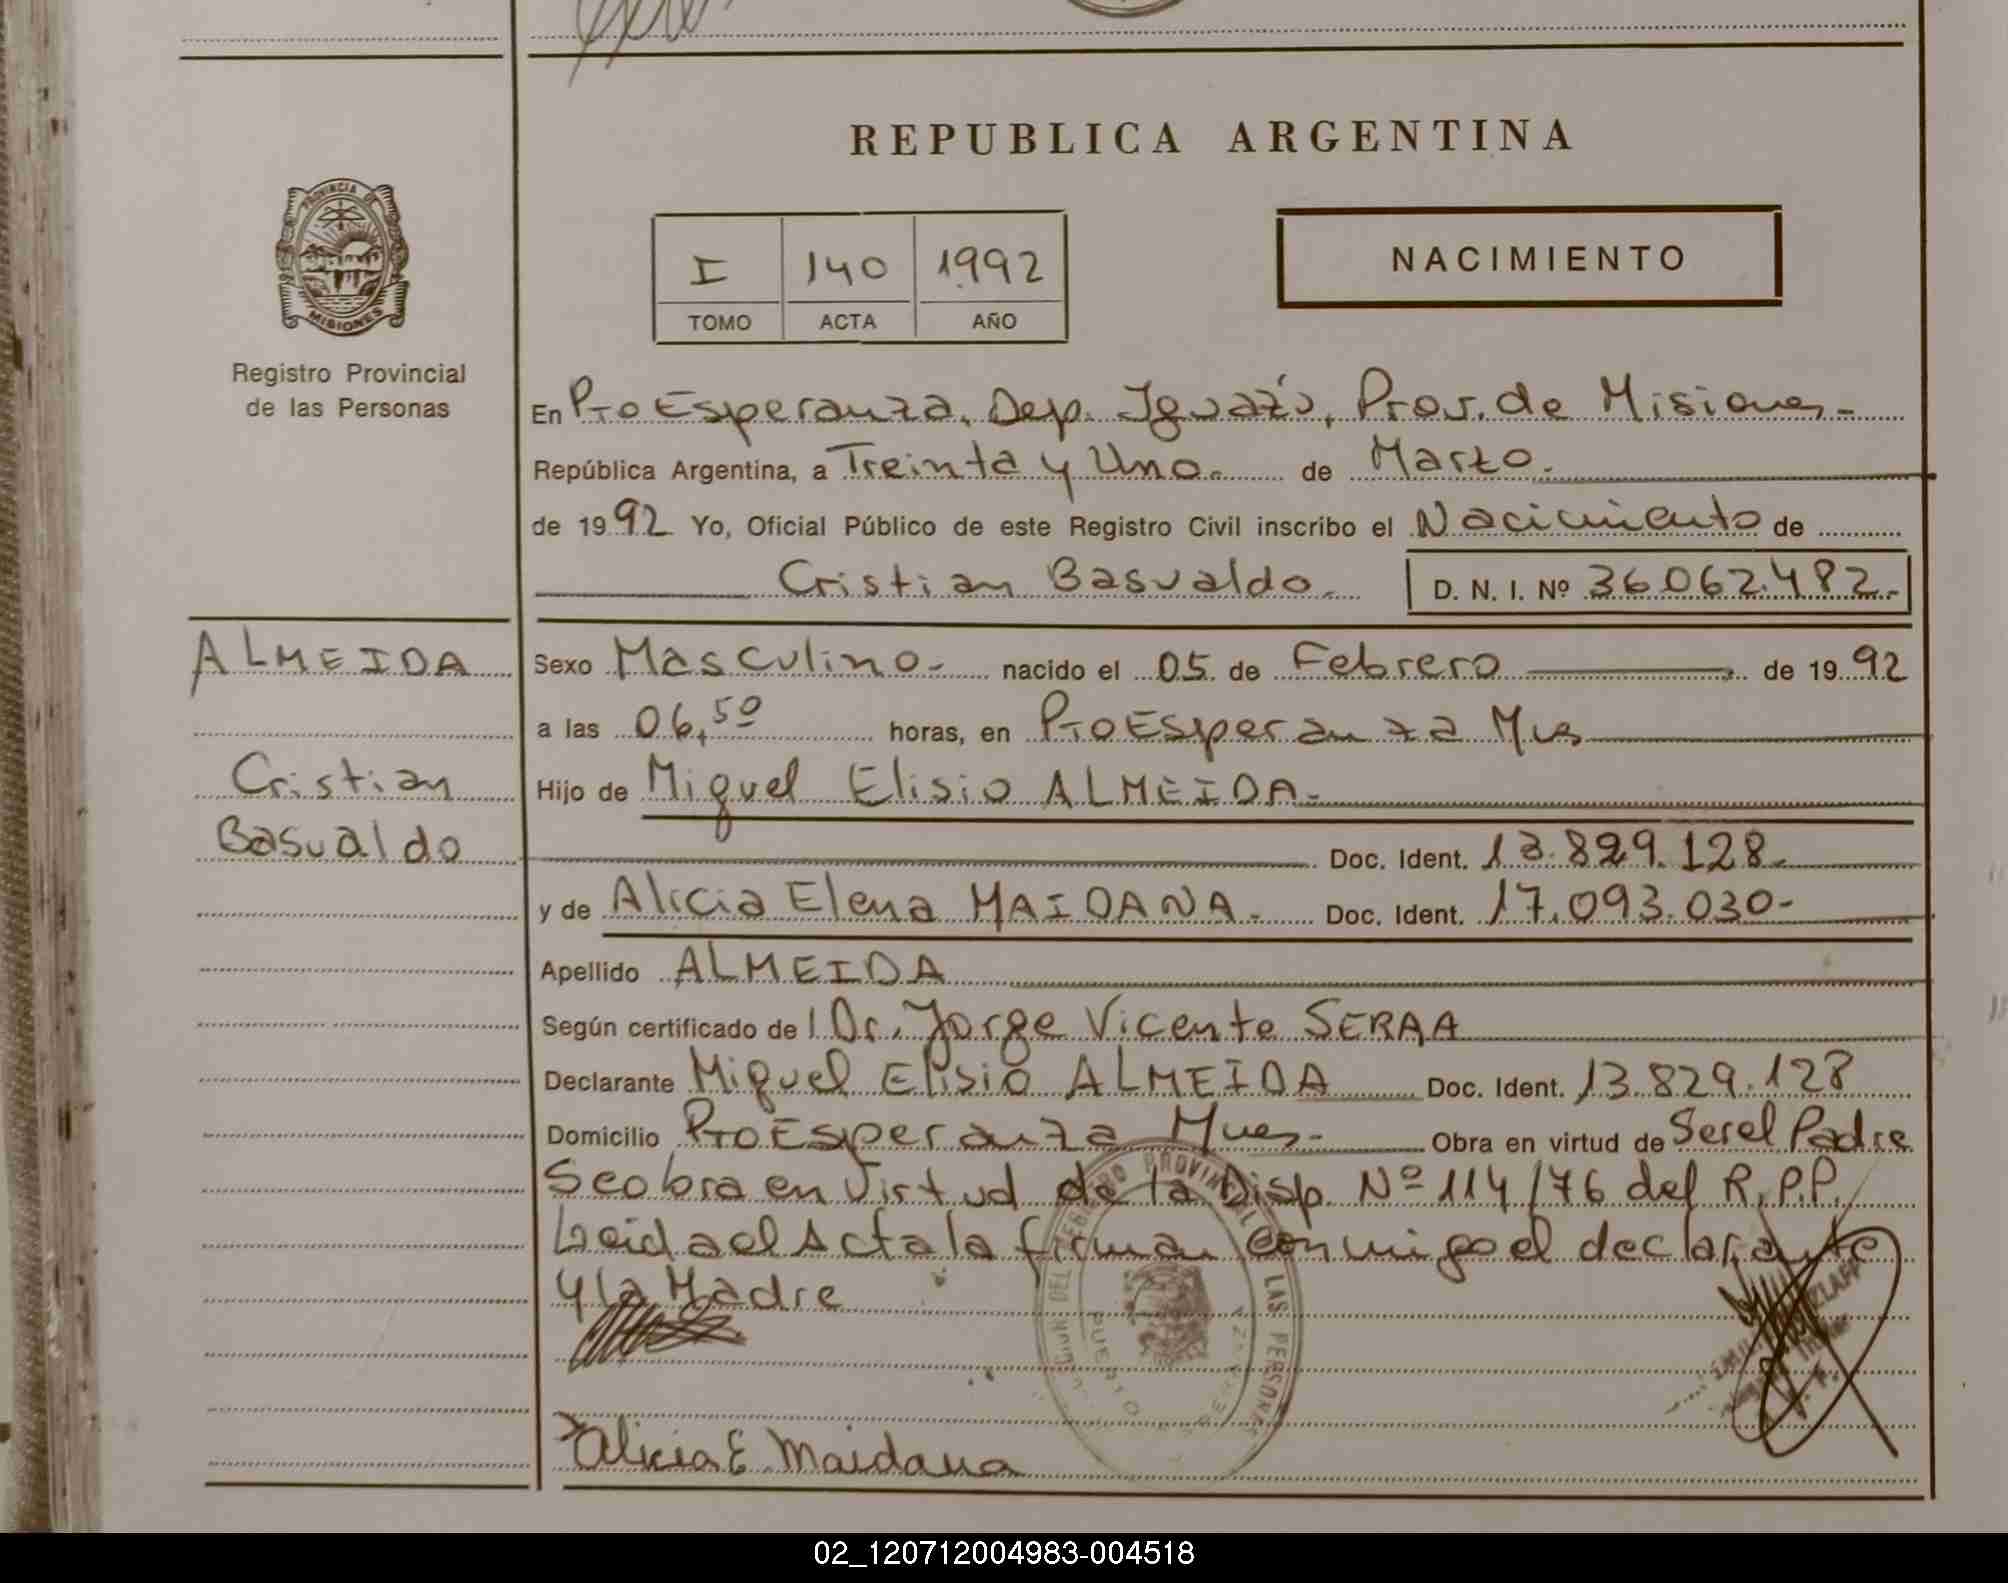 REPUBLICA ARGENTINA
PROVINCIA DE
MISIONES
Registro Provincial
de las Personas
I 140 1992
TOMO ACTA AÑO
NACIMIENTO
En Pto Esperanza, Dep. Iguazú, Prov. de Misiones-
República Argentina, a Treinta y Uno. de Marzo.
de 1992 Yo, Oficial Público de este Registro Civil inscribo el Nacimiento de
Cristian Basualdo. D. N. I. Nº 36.062.482.-
ALMEIDA
Cristian
Basualdo
Sexo Masculino- nacido el 05 de Febrero de 1992
a las 06,50 horas, en Pto Esperanza Mnes
Hijo de Miguel Elisio ALMEIDA-
Doc. Ident. 13.829.128-
y de Alicia Elena MAIDANA- Doc. Ident. 17.093.030-
Apellido ALMEIDA
Según certificado de Dr. Jorge Vicente SERAA
Declarante Miguel Elisio ALMEIDA Doc. Ident. 13.829.128
Domicilio Pto Esperanza Mnes- Obra en virtud de Ser el Padre
Se obra en Virtud de la Disp. Nº 114/76 del R.P.P.
Leida el Acta la firman conmigo el declarante
y la Madre
Alicia E Maidana
02_120712004983-004518